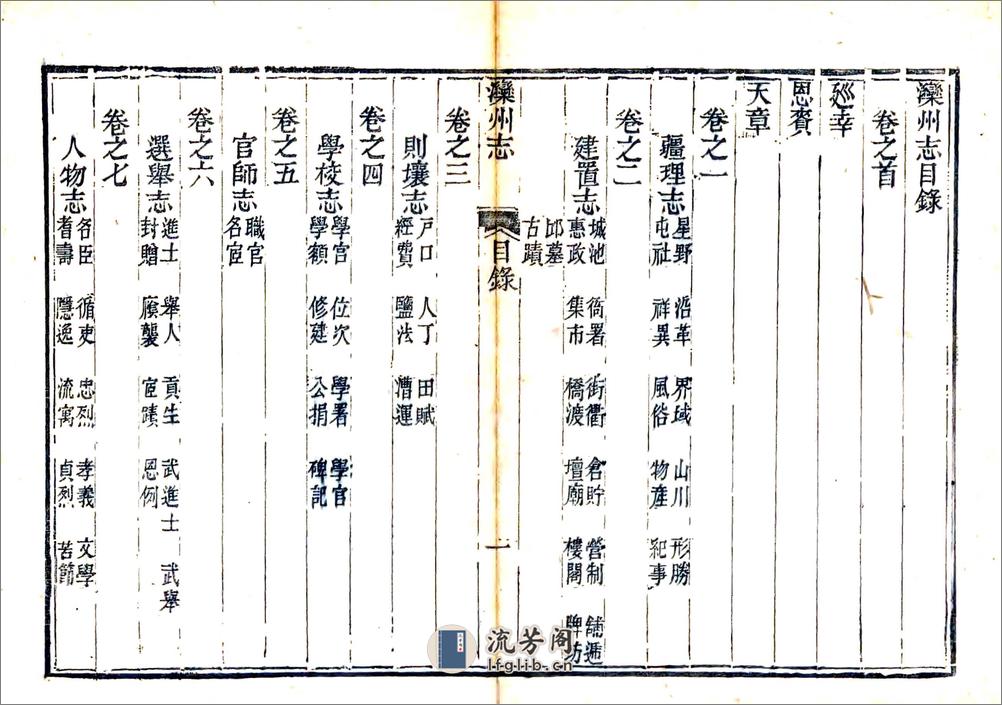 灤州志目錄
卷之首
廵幸
恩賚
天章
卷之一
疆理志 星野 沿革 界域 山川 形勝
屯社 祥異 風俗 物產 紀事
卷之二
建置志 城池 衙署 街衢 倉貯 營制 舖遞
惠政 集市 橋渡 壇廟 樓閣 牌坊
邱墓
古蹟
灤州志
目錄
一
卷之三
則壤志 戸口 人丁 田賦
經費 鹽法 漕運
卷之四
學校志 學宮 位次 學署 學官
學額 修建 公捐 碑記
卷之五
官師志 職官
名宦
卷之六
選舉志 進士 舉人 貢生 武進士 武舉
封贈 廕襲 宦蹟 恩例
卷之七
人物志 名臣 循吏 忠烈 孝義 文學
耆壽 隱逸 流寓 貞烈 苦節
流芳阁
lfglib.cn